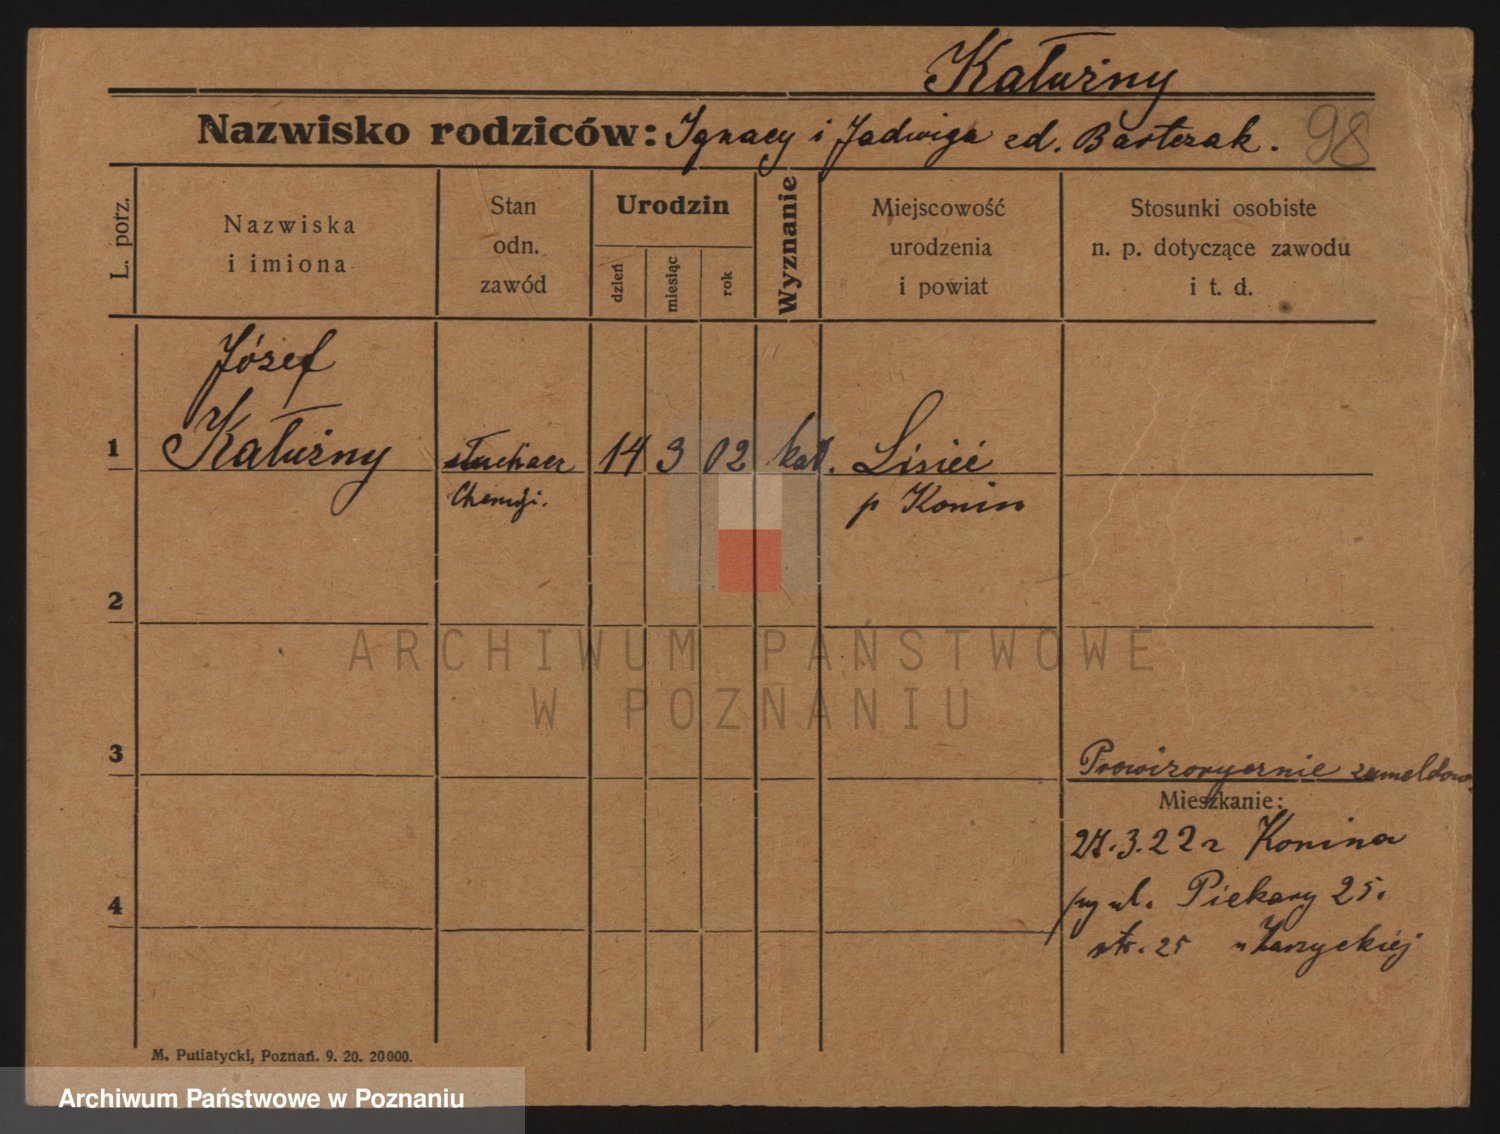 Kałużny
Nazwisko rodziców: Ignacy i Jadwiga zd. Bartczak.
98
L. porz.
Nazwiska
i imiona
Stan
odn.
zawód
Urodzin
dzień
miesiąc
rok
Wyznanie
Miejscowość
urodzenia
i powiat
Stosunki osobiste
n. p. dotyczące zawodu
i t. d.
Józef
1 Kałużny słuchacz 14 3 02 kat. Lisieć
p Konin
2
ARCHIWUM PAŃSTWOWE
W POZNANIU
3
Prowizorycznie zameldow.
Mieszkanie:
27.3.22 z Konina
przy ul. Piekary 25.
4
str. 25 u Zarzyckiej
M. Putiatycki, Poznań. 9. 20. 20000.
Archiwum Państwowe w Poznaniu